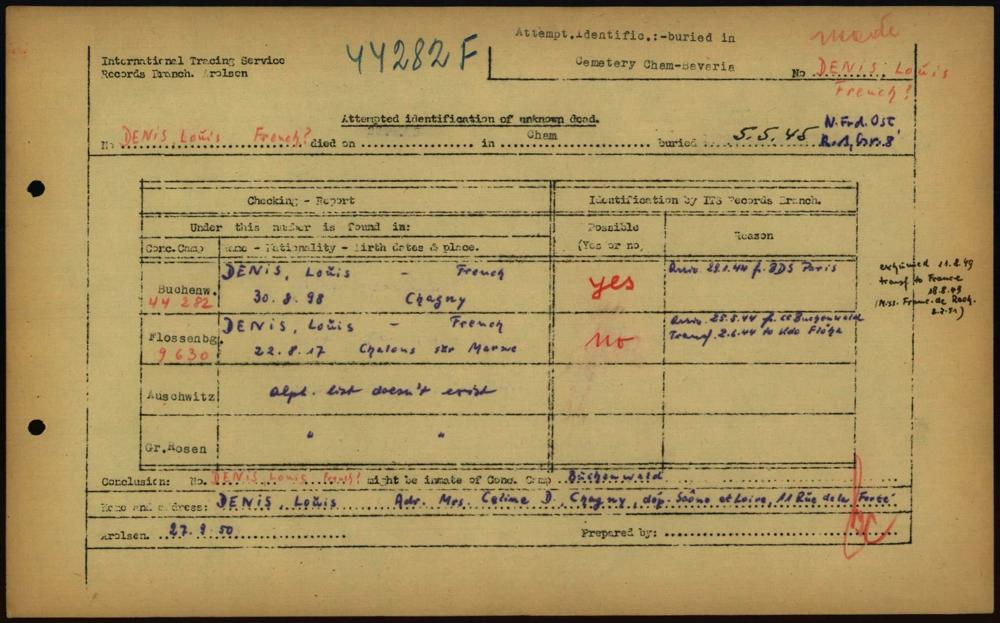 44282 F
Attempt.Identific.:-buried in
Cemetery Cham-Bavaria
made
No DENIS, Louis
French?
International Tracing Service
Records Branch. Arolsen
Attempted identification of unknown dead.
No DENIS, Louis French? died on in Cham buried 5.5.45 N.Frd.Ost
Checking - Report
Identification by ITS Records Branch.
Under this number is found in:
Possible
(Yes or no)
Reason
Conc.Camp
Name - Nationality - Birth dates & place.
Buchenw.
44 282
DENIS, Louis - French
30.8.98 Chagny
yes
Arriv. 29.1.44 f. BDS Paris
exhumed 11.8.49
transf to France
18.8.49
(Miss. Franc. de Rech.
Flossenbg.
9630
DENIS, Louis - French
22.8.17 Chalons sur Marne
no
Arriv. 25.5.44 f. CC Buchenwald
Transf. 2.6.44 to Kdo Flöha
Auschwitz
alph. list doesn't exist
Gr.Rosen
" "
Conclusion: No. DENIS Louis French? might be inmate of Conc. Camp Buchenwald
Name and address: DENIS, Louis Adr. Mrs. Celine D. Chagny, dép. Saône et Loire, 11 Rue de la
Arolsen. 27.9.50
Prepared by: